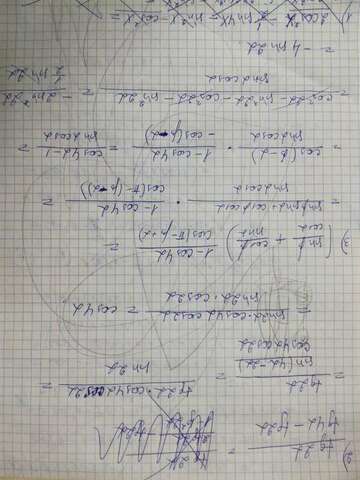 2) tg2α / (tg4α − tg2α) =
= tg2α / (sin(4α−2α) / (cos4α cos2α)) = tg2α · cos4α cos2α / sin2α =
= sin2α · cos4α cos2α / (sin2α · cos2α) = cos4α
3) (sinβ / cosα + cosβ / sinα) · (1−cos4α) / cos(π−β+α) =
= (sinβ sinα + cosβ cosα) / (sinα cosα) · (1−cos4α) / cos(π−(β−α)) =
= cos(β−α) / (sinα cosα) · (1−cos4α) / (−cos(β−α)) = (cos4α−1) / (sinα cosα) =
= (cos²2α − sin²2α − cos²2α − sin²2α) / (sinα cosα) = −2sin²2α / (1/2 sin2α)
= −4 sin2α